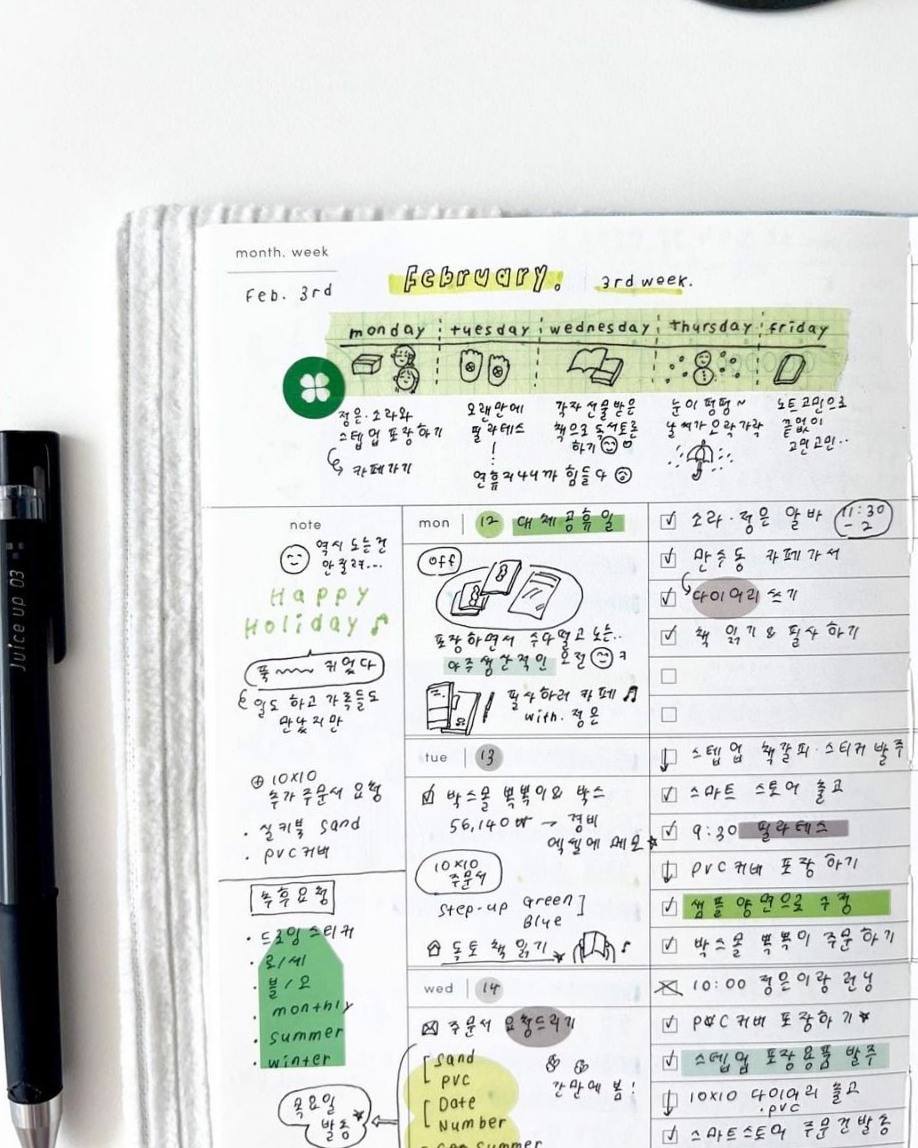 Juice up 03
month. week
Feb. 3rd
February.
3rd week.
monday tuesday wednesday thursday friday
정은·소라와
스텝업 포장하기
카페가기
오랜만에
필라테스
연휴지나니까 힘들다
각자 선물받은
책으로 독서토론
하기
눈이 펑펑~
날씨가 오락가락
노트고민으로
끝없이
고민고민..
note
역시 노는건
안질려...
Happy
Holiday
푹 쉬었다
일도 하고 가족들도
만났지만
⊕ 10x10
추가 주문서 요청
· 실키북 sand
· pvc커버
추후요청
· 드로잉 스티커
· 로/세
· 블/오
· monthly
· summer
· winter
목요일
발송
mon 12 대체공휴일
off
포장하면서 수다떨고 노는..
아주생산적인 오전 ㅋ
필사하러 카페
with. 정은
tue 13
박스몰 뽁뽁이와 박스
56,140₩ → 경비
엑셀에 메모
10x10
주문서
step-up Green
Blue
독토 책 읽기
wed 14
주문서 요청드리기
sand
pvc
Date
Number
간만에 봄!
summer
소라·정은 알바 11:30
-2
만수동 카페가서
다이어리 쓰기
책 읽기 & 필사하기
스텝업 책갈피·스티커 발주
스마트 스토어 출고
9:30 필라테스
pvc커버 포장하기
샘플 양면으로 수정
박스몰 뽁뽁이 주문하기
10:00 정은이랑 런닝
pvc커버 포장하기
스텝업 포장용품 발주
10x10 다이어리 출고
·pvc
스마트스토어 주문건발송